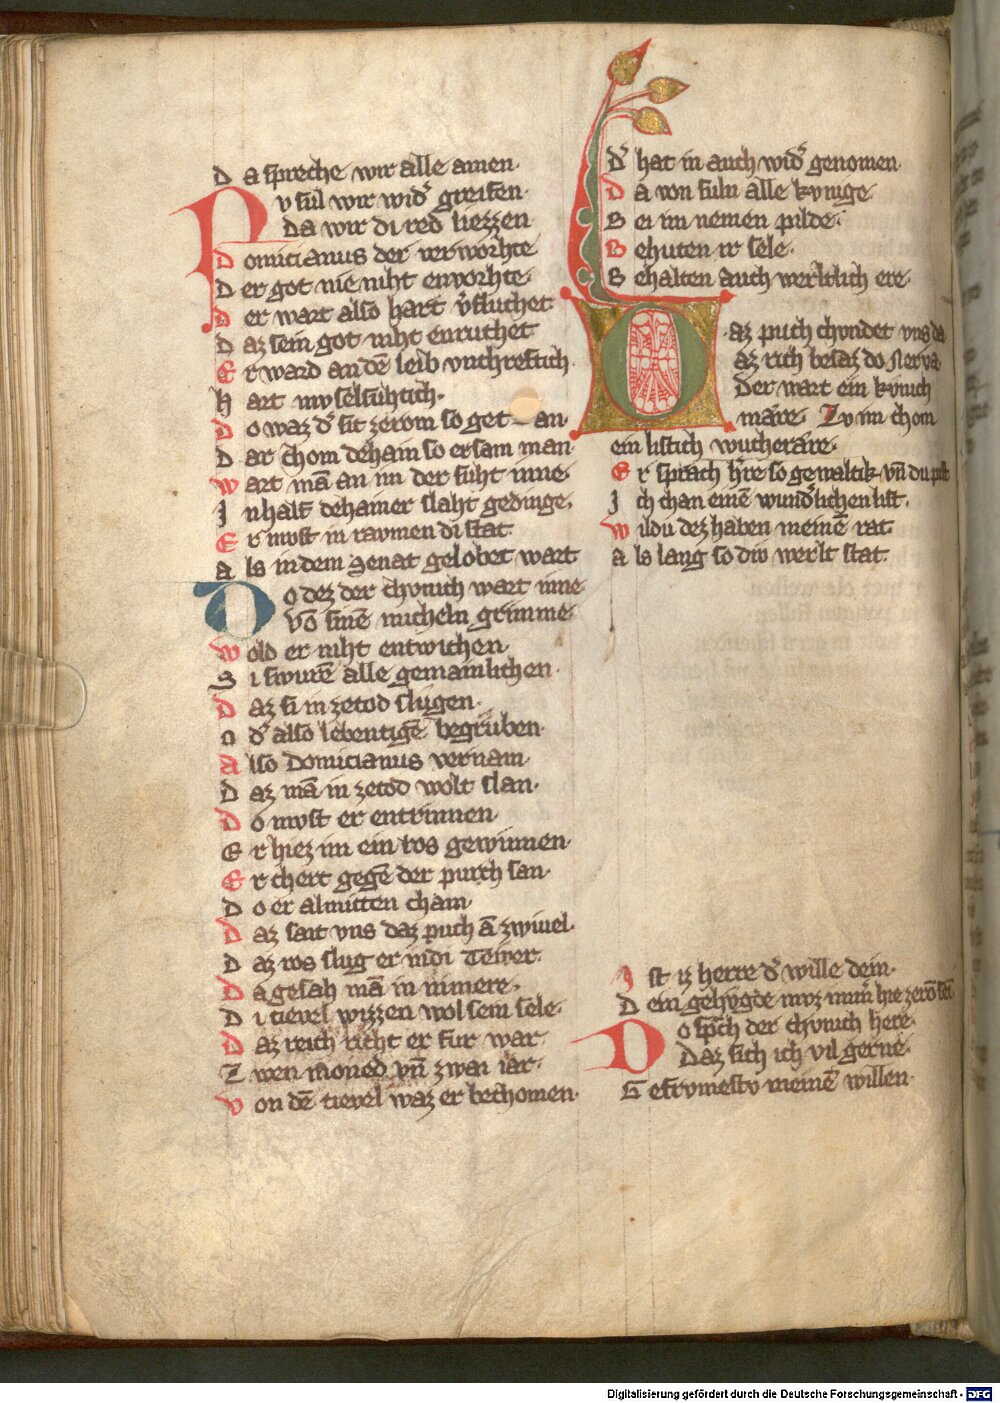 Da spreche wir alle amen·
Nv sul wir wid͛ greifen·
Da wir di red liezzen
Domicianus der verworhte
Der got nie niht ervorhte·
Der wart also hart v͛fluchet
Daz sein got niht enruchet·
Er ward an dē leib vnchreftich
Hart myselsuhtich·
Do waz d͛ sit ze rom so get an·
Dar chom dehain so ersam man·
Wart mā an im der suht inne·
Inhalf dehainer slaht gedinge·
Er must in ravmen di stat·
Als in dem Senat gelobet wart
Do dez der chvnich wart inne·
Vō sinē micheln grimme·
Wold er niht entwichen·
Si swurē alle gemainlichen·
Daz si in ze tod slugen·
Od͛ also lebentigē begruben·
Also Domicianus vernam·
Daz mā in ze tod wolt slan·
Do must er entrinnen·
Er hiez im ein ros gewinnen·
Er chert gegē der purch san·
Do er almitten cham·
Daz sait vns daz puch ā zwivel·
Daz ros slug er in di Teiver·
Da gesah mā in nimere·
Di tievel wizzen wol sein sele·
Daz reich richt er fur war·
Zwen moned vn̄ zwai iar·
Von dē tievel waz er bechomen·
D͛ hat in auch wid͛ genomen·
Da von suln alle kvnige·
Bei im nemen pilde·
Behuten ir sele·
Behalten auch werltlich ere·
Daz puch chvndet vns da
az rich besaz do Nerva
Der wart ein kvnich
märe· Zv im chom
ein listich wucheräre·
Er sprach h͛re so gewaltik vn̄ du pist
Ich chan einē wund͛lichen list·
Wildu dez haben meinē rat
Als lang so div werlt stat·
Ist iz herre d͛ wille dein·
Dein gehvgde mvz im̄͛ hie ze rō sei
Do sp͛ch der chvnich here·
Daz sich ich vil gerne·
Gefrvmestv meinē willen·
Digitalisierung gefördert durch die Deutsche Forschungsgemeinschaft - DFG